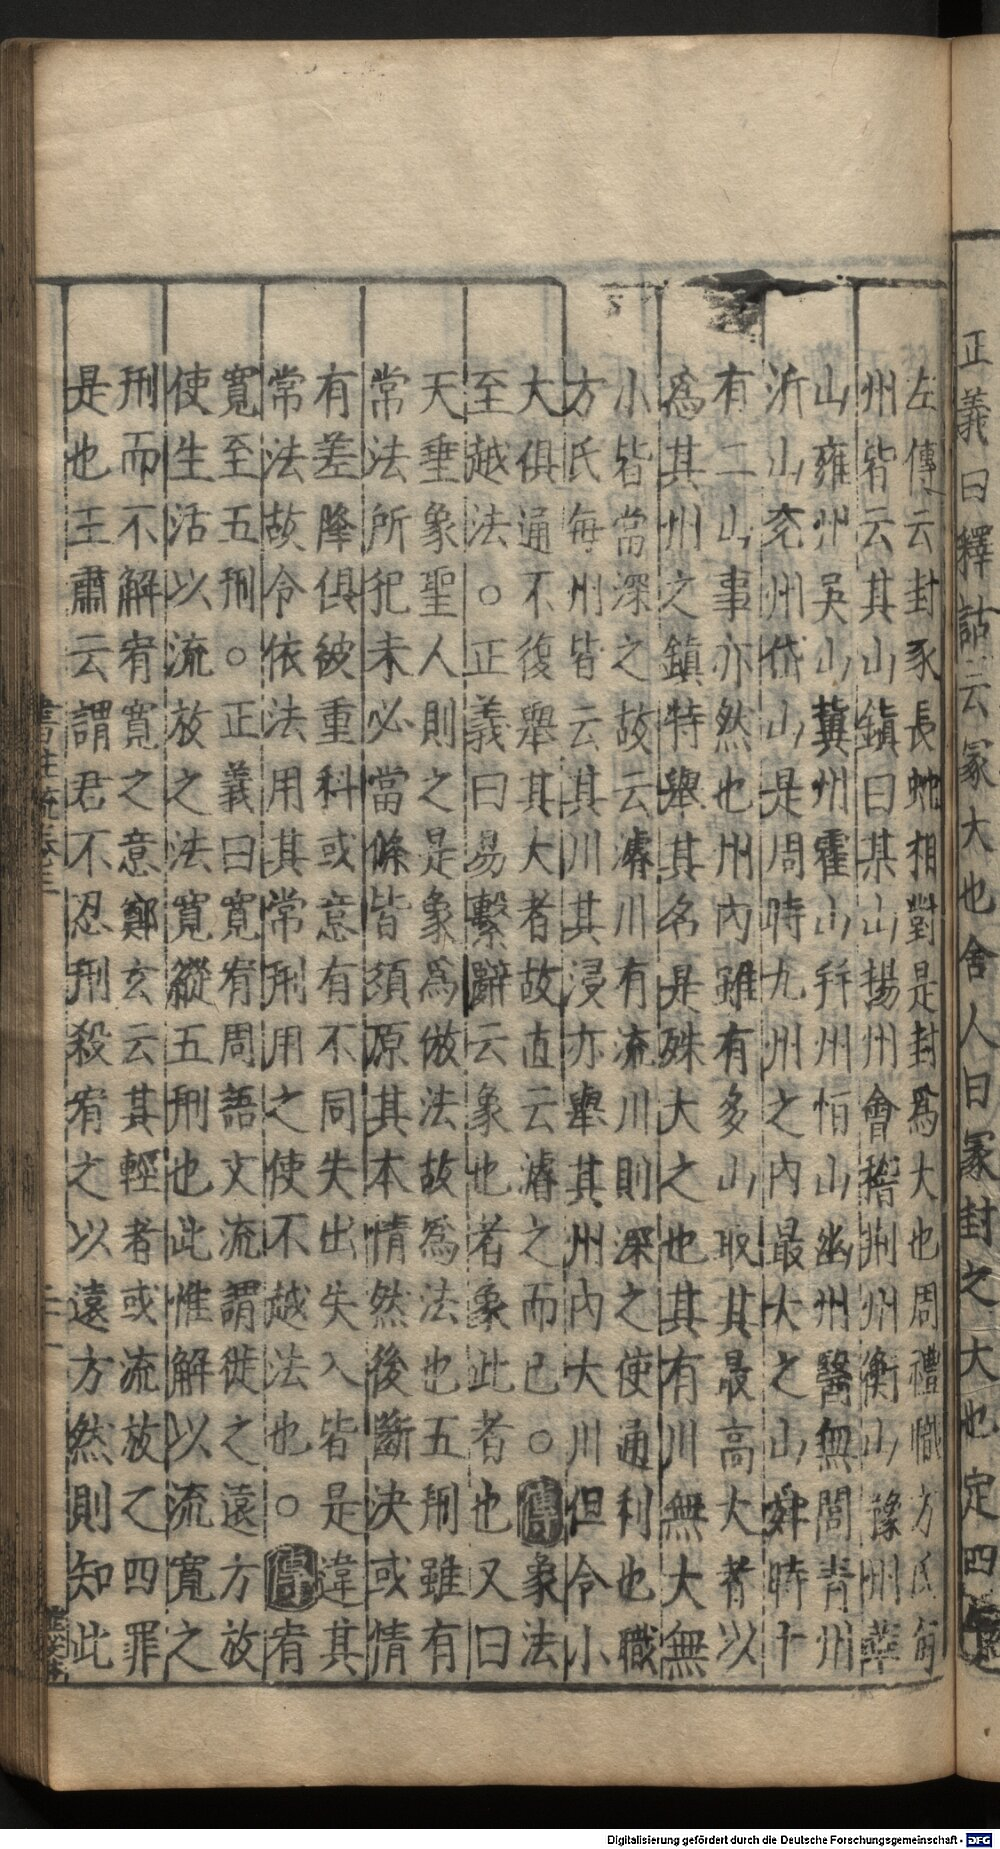 正義曰釋詁云冢大也舍人曰冢封之大也定四
左傳云封豕長蛇相對是封爲大也周禮職方氏每
州皆云其山鎮曰某山揚州會稽荆州衡山豫州華
山雍州吳山冀州霍山并州恒山幽州醫無閭青州
沂山兖州岱山是周時九州之內最大之山舜時十
有二山事亦然也州內雖有多山取其最高大者以
爲其州之鎮特舉其名是殊大之也其有川無大無
小皆當深之故云濬川有流川則深之使通利也職
方氏每州皆云其川其浸亦舉其州內大川但令小
大俱通不復舉其大者故直云濬之而已○傳象法
至越法○正義曰易繫辭云象也者象此者也又曰
天垂象聖人則之是象爲倣法故爲法也五刑雖有
常法所犯未必當條皆須原其本情然後斷決或情
有差降俱被重科或意有不同失出失入皆是違其
常法故令依法用其常刑用之使不越法也○傳宥
寬至五刑○正義曰寬宥周語文流謂徙之遠方放
使生活以流放之法寬縱五刑也此惟解以流寬之
刑而不解宥寬之意鄭玄云其輕者或流放之四罪
是也王肅云謂君不忍刑殺宥之以遠方然則知此
書注疏卷三
Digitalisierung gefördert durch die Deutsche Forschungsgemeinschaft - DFG